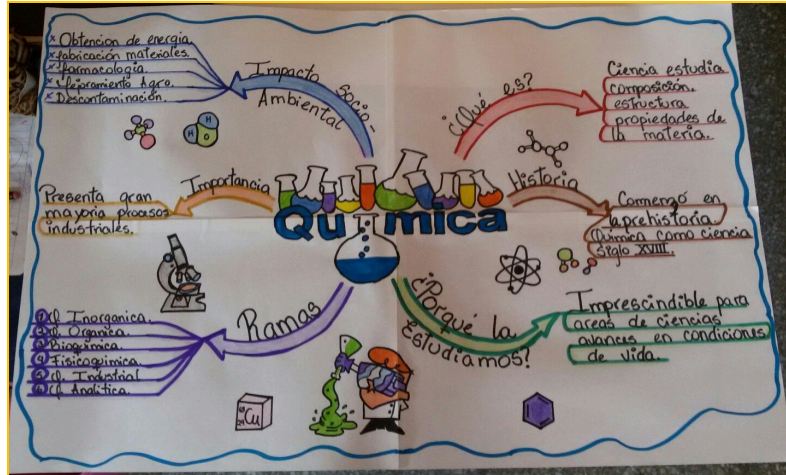 Química
¿Qué es?
Ciencia estudia
composición.
estructura
propiedades de
la materia.
Historia
Comenzó en
la prehistoria.
Química como ciencia
siglo XVIII.
¿Porqué la
estudiamos?
Imprescindible para
areas de ciencias
avances en condiciones
de vida.
Ramas
① Q. Inorganica.
② Q. Organica.
③ Bioquímica.
④ Fisicoquímica.
⑤ Q. Industrial
⑥ Q. Analítica.
Importancia
Presenta gran
mayoria procesos
industriales.
Impacto Socio-
Ambiental
x Obtencion de energia.
x fabricación materiales.
x farmacologia.
x Mejoramiento Agro.
x Descontaminación.
H
H
O
Cu